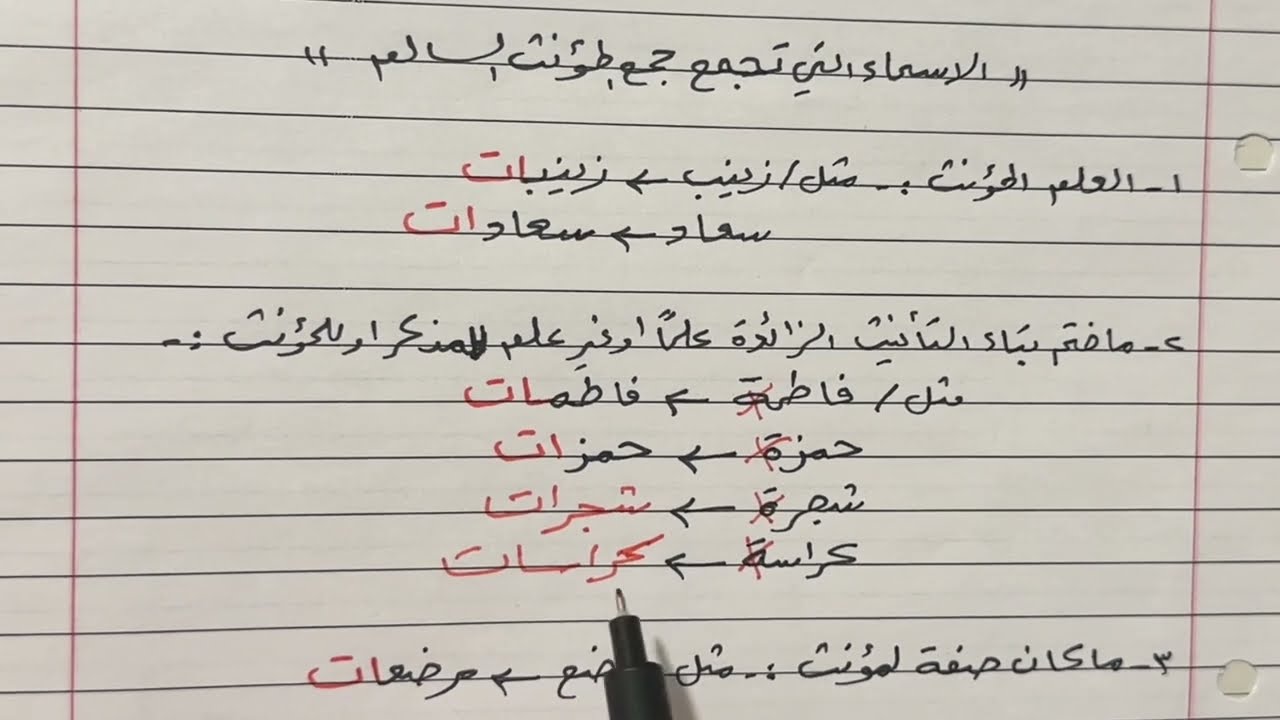 " الاسماء التي تجمع جمع المؤنث السالم "
١- العلم المؤنث :- مثل / زينب ← زينبات
سعاد ← سعادات
٢- ماختم بتاء التأنيث الزائدة علمًا او غير علم للمذكر او للمؤنث :-
مثل / فاطمة ← فاطمات
حمزة ← حمزات
شجرة ← شجرات
كراسة ← كراسات
٣- ما كان صفة لمؤنث :- مثل ← مرضعات